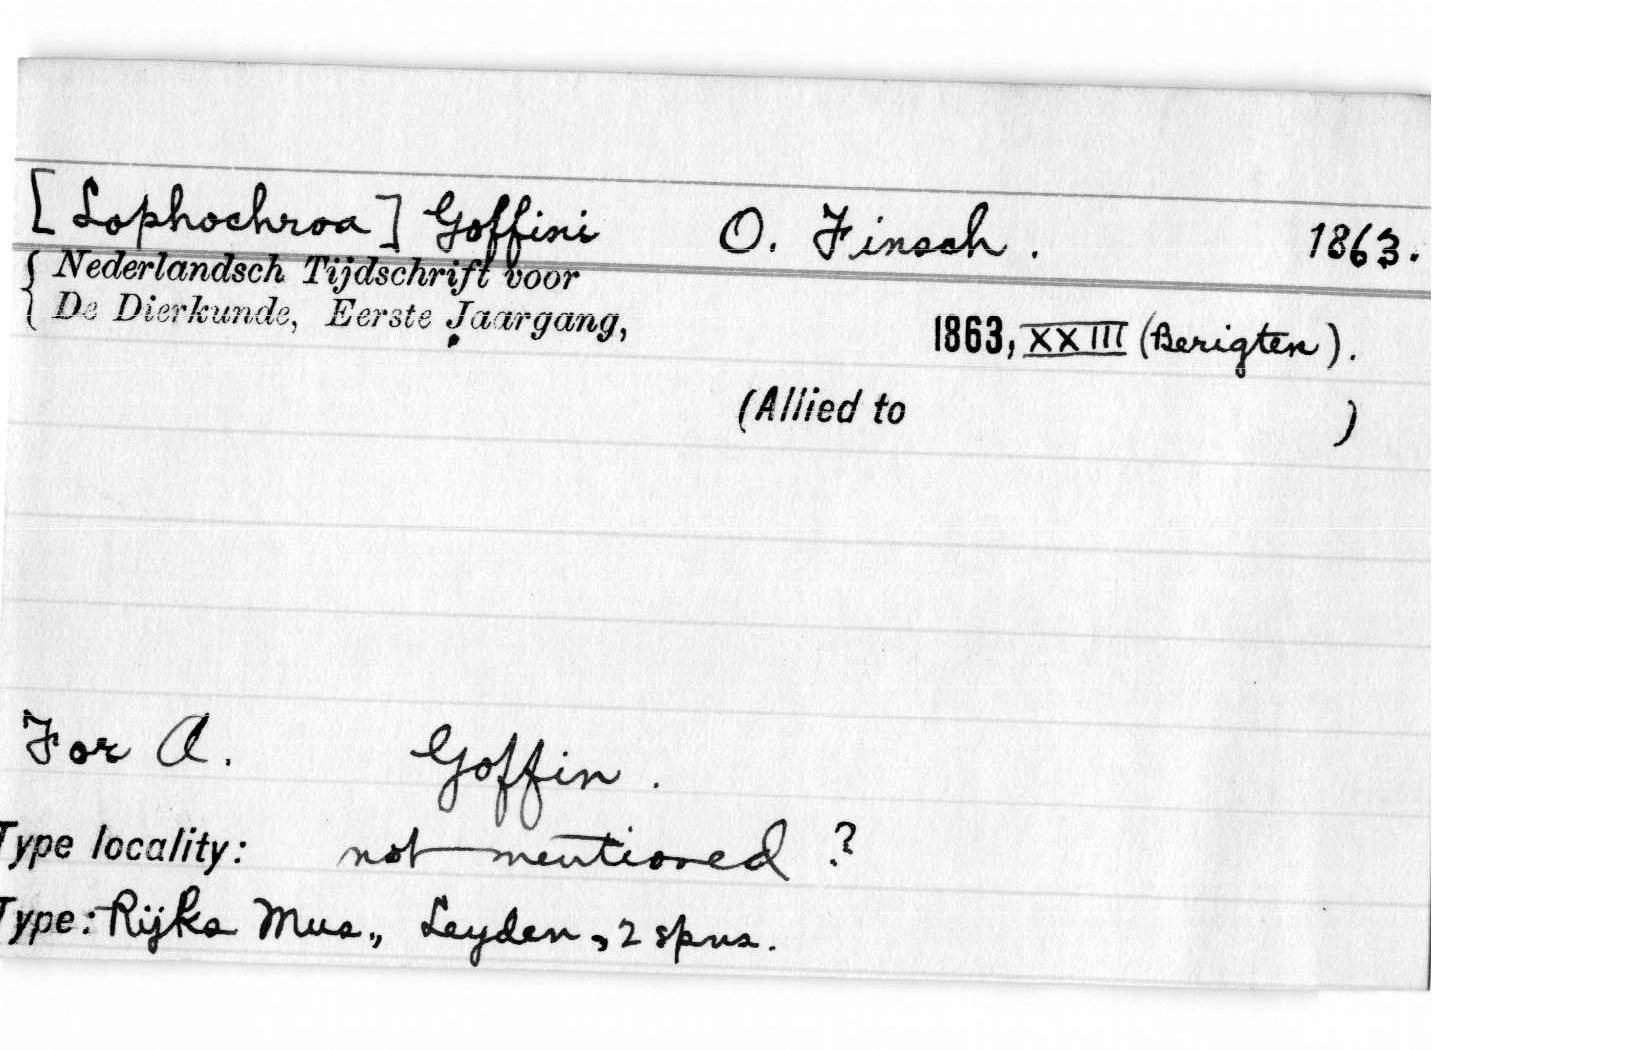 [Lophochroa] Goffini O. Finsch. 1863.
{ Nederlandsch Tijdschrift voor
De Dierkunde, Eerste Jaargang,
1863, XXIII (Berigten).
(Allied to )
For A. Goffin.
Type locality: not mentioned ?
Type: Rijks Mus., Leyden, 2 spns.